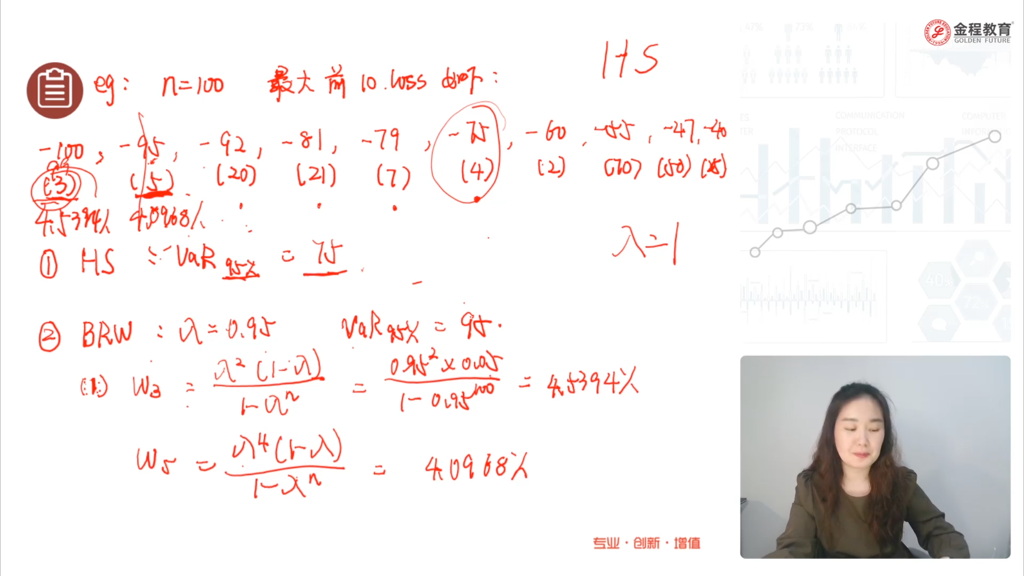 金程教育
GOLDEN FUTURE
HS
eg: n=100 最大前10.loss 如下:
-100, -95, -92, -81, -79, -75, -60, -55, -47, -40
(3) (5) (20) (21) (7) (4) (2) (50)
4.5394% 4.0968%
① HS : VaR95% = 75
λ=1
② BRW : λ=0.95 VaR95% = 95.
W3 = λ²(1-λ) / 1-λⁿ = 0.95²×0.05 / 1-0.95¹⁰⁰ = 4.5394%
W5 = λ⁴(1-λ) / 1-λⁿ = 4.0968%
专业·创新·增值